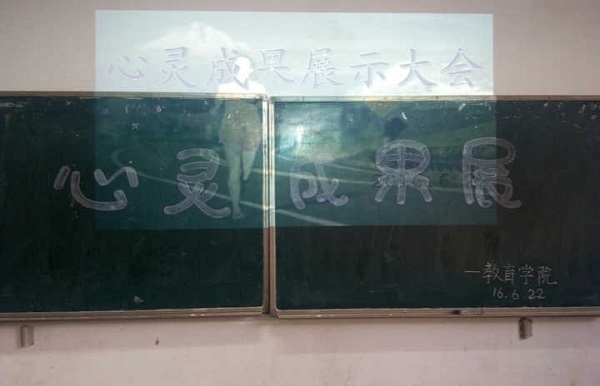 心灵成果展示大会
心灵成果展
一教育学院
16.6.22